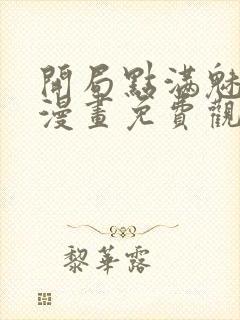 開局點滿魅
漫畫免費觀
黎華露